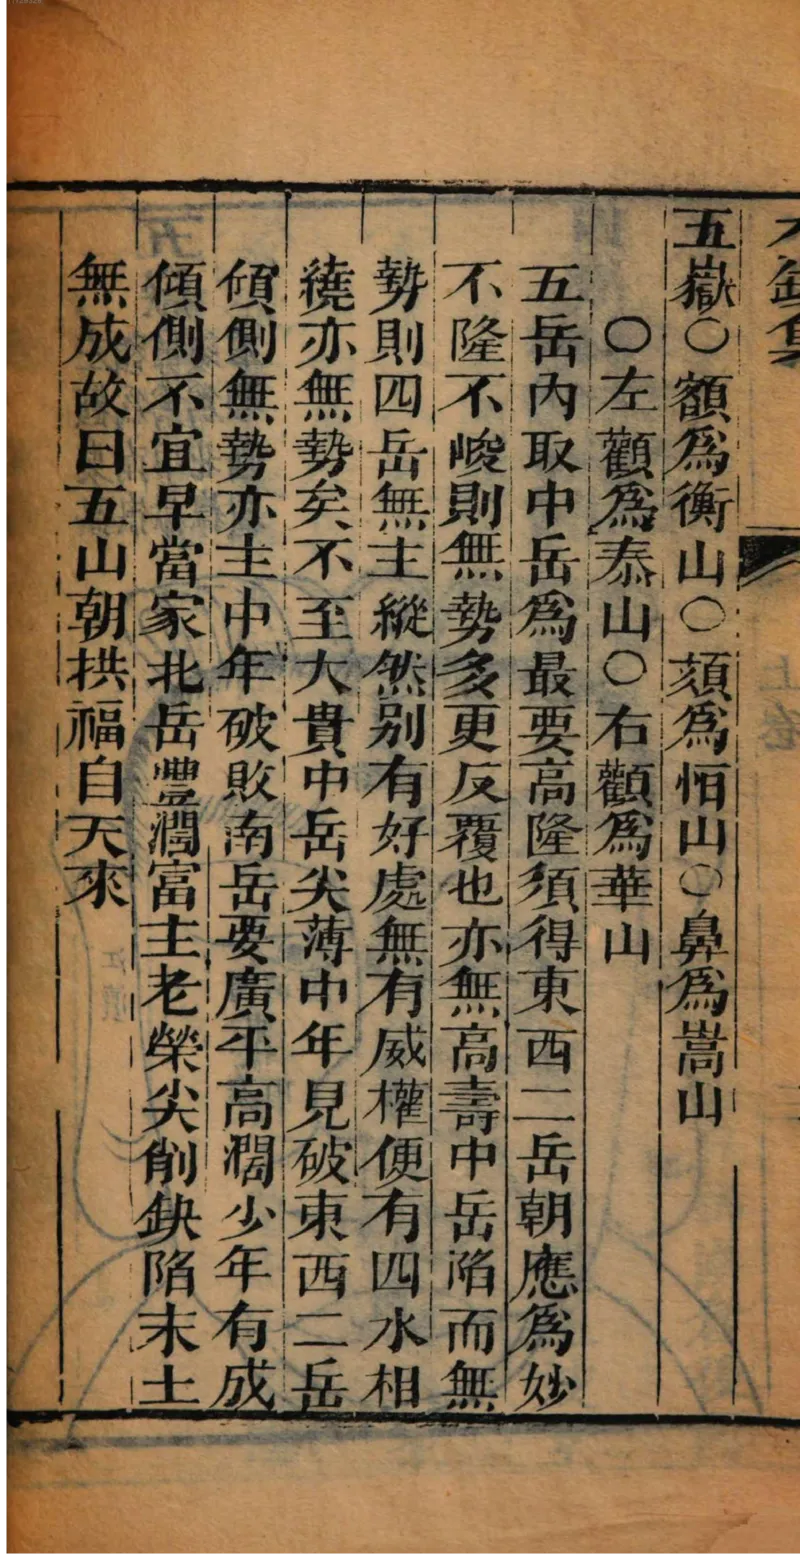 五嶽〇額爲衡山〇頦爲恒山〇鼻爲嵩山
〇左顴爲泰山〇右顴爲華山
五岳內取中岳爲最要高隆須得東西二岳朝應爲妙
不隆不峻則無勢多更反覆也亦無高壽中岳陷而無
勢則四岳無主縱然别有好處無有威權便有四水相
徺亦無勢矣不至大貴中岳尖薄中年見破東西二岳
傾側無勢亦主中年破敗南岳要廣平高濶少年有成
傾側不宜早當家北岳豐濶富主老榮尖削缺陷末土
無成故曰五山朝拱福自天來